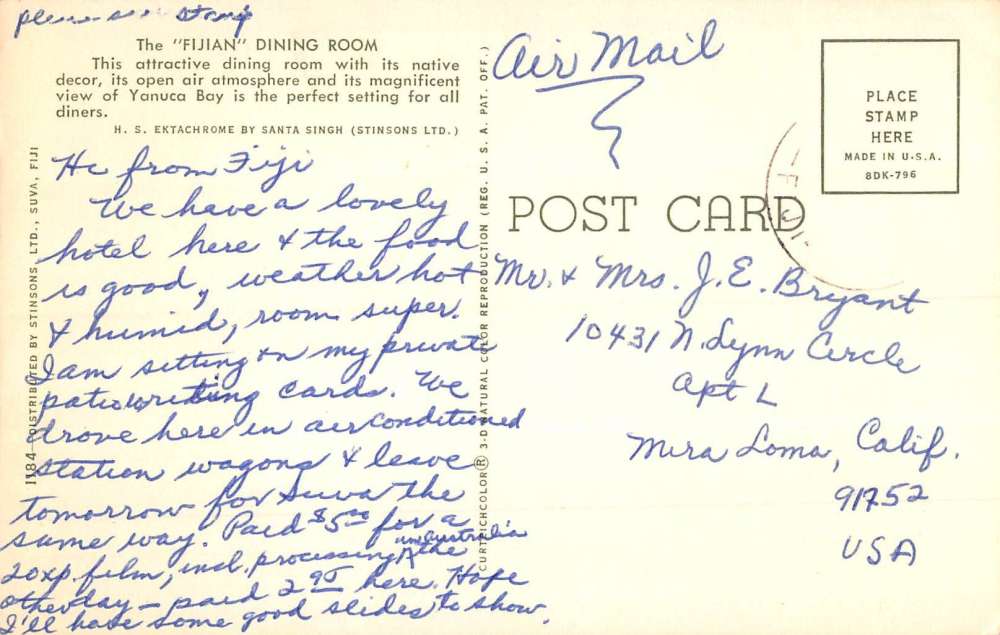 stamp
The "FIJIAN" DINING ROOM
This attractive dining room with its native
decor, its open air atmosphere and its magnificent
view of Yanuca Bay is the perfect setting for all
diners.
H. S. EKTACHROME BY SANTA SINGH (STINSONS LTD.)
Hi from Fiji
We have a lovely
hotel here & the food
is good, weather hot
& humid, room super.
I am sitting on my private
patio writing cards. We
drove here in airconditioned
station wagons & leave
tomorrow for Suva the
same way. Paid $5.00 for a
20xp film, incl. processing in Australia the
other day - paid 2.95 here. Hope
I'll have some good slides to show.
1184—DISTRIBUTED BY STINSONS LTD., SUVA, FIJI
CURTEICHCOLOR® 3-D NATURAL COLOR REPRODUCTION (REG. U. S. A. PAT. OFF.)
Air Mail
POST CARD
PLACE
STAMP
HERE
MADE IN U.S.A.
8DK-796
Mr. & Mrs. J. E. Bryant
10431 N. Lynn Circle
Apt L
Mira Loma, Calif.
91752
USA